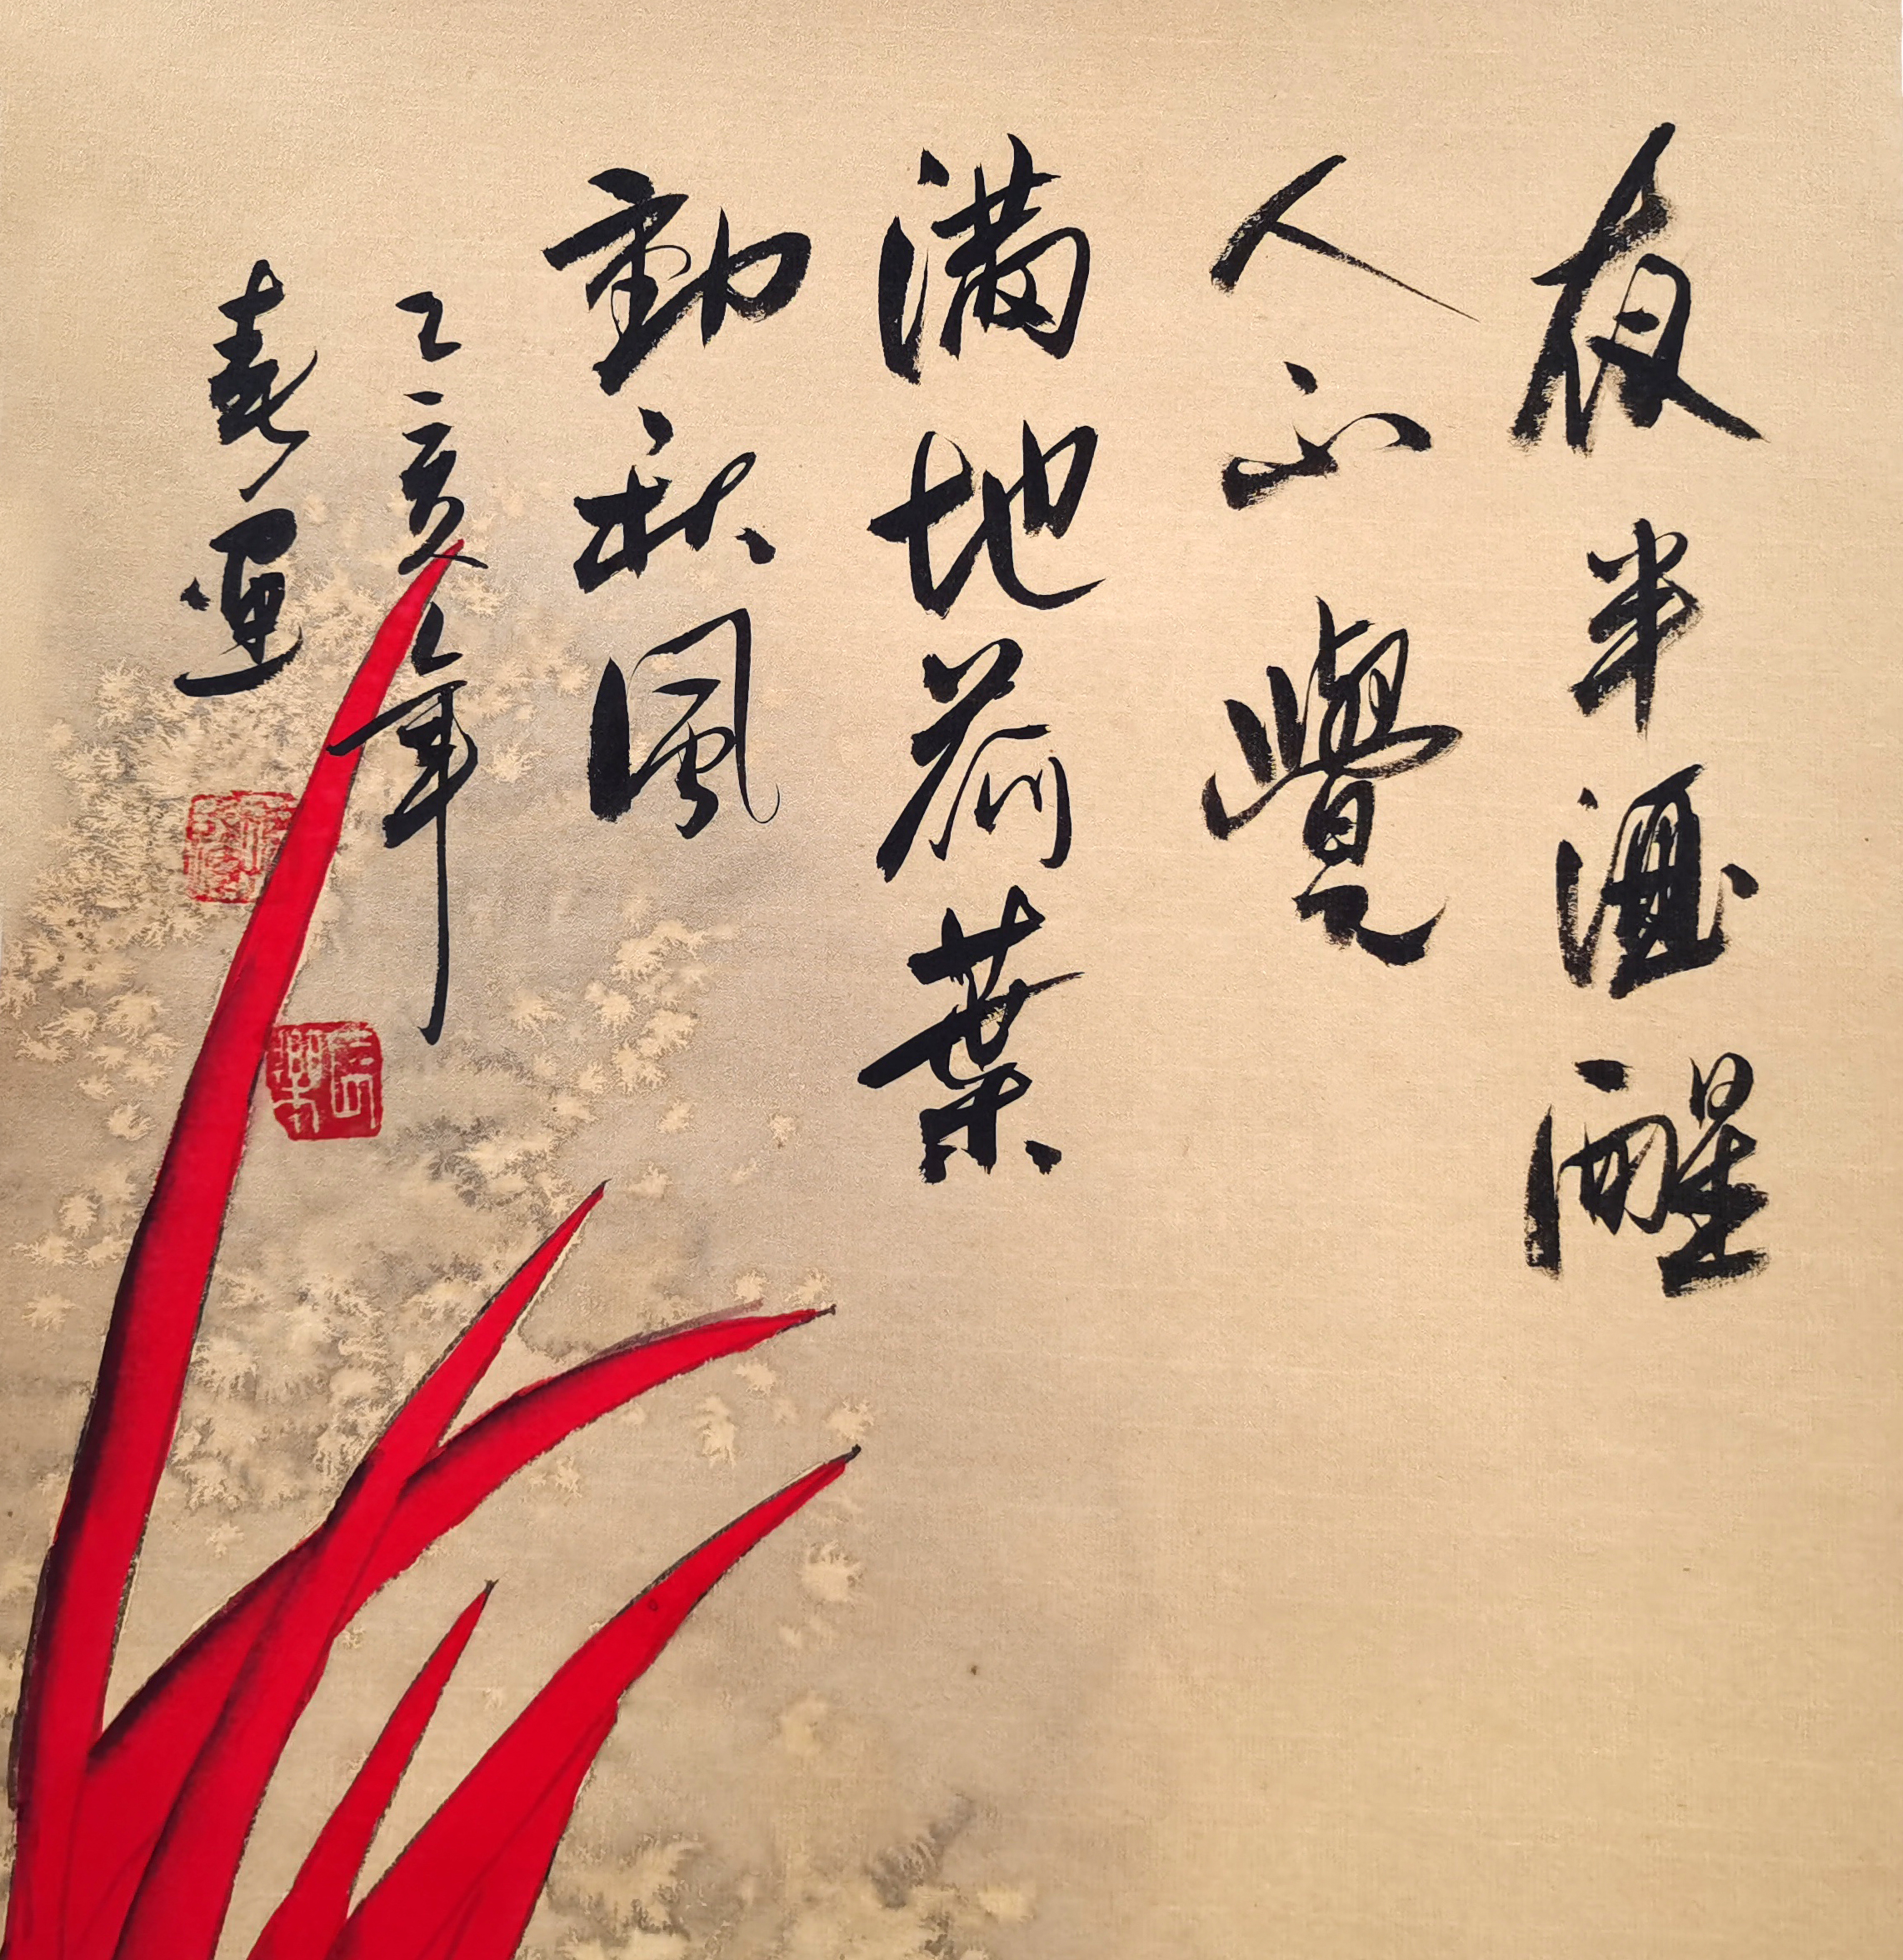 夜半酒醒
人不覺
滿地荷葉
動秋風
乙亥年
春運